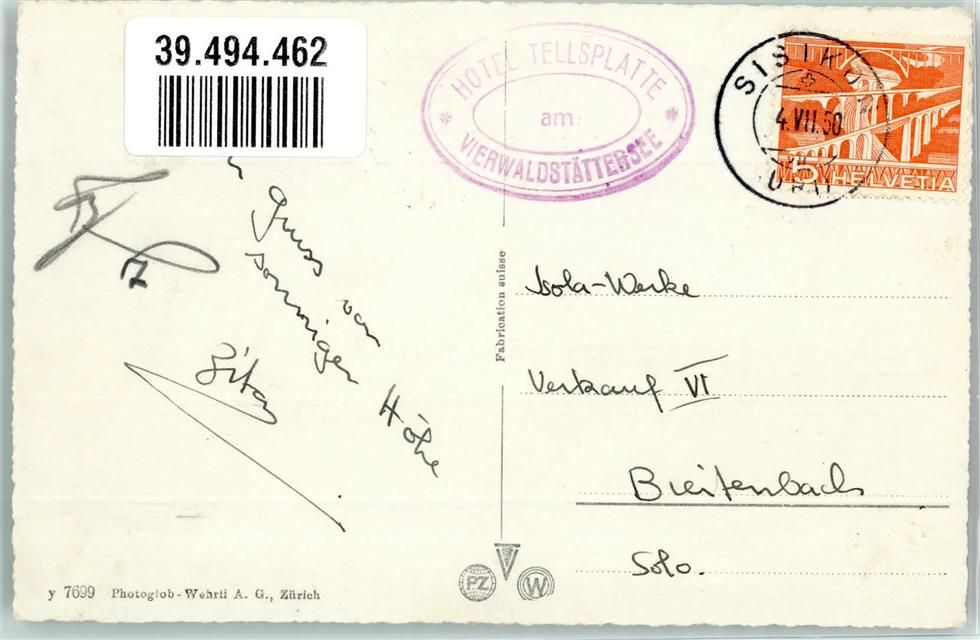 39.494.462
HOTEL TELLSPLATTE
am
VIERWALDSTÄTTERSEE
SISIKON
4.VII.50
(URI)
5 HELVETIA
Gruss von
sonniger Höhe
Gita
Fabrication suisse
Isola-Werke
Verkauf VI
Breitenbach
Solo.
PZ
W
y 7699 Photoglob-Wehrli A. G., Zürich